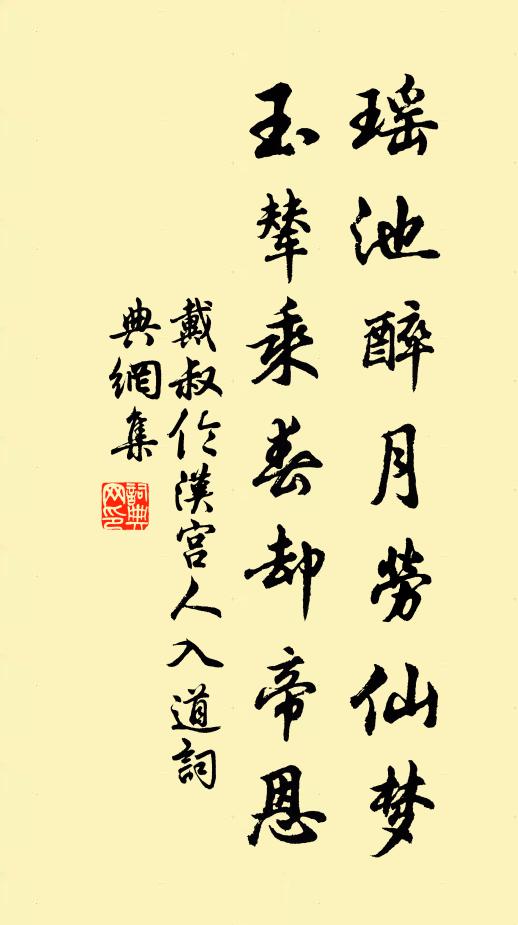 瑶池醉月劳仙梦
玉辇乘春却帝恩
戴叔伦漢宮人入道詞
典網集
詞典网印